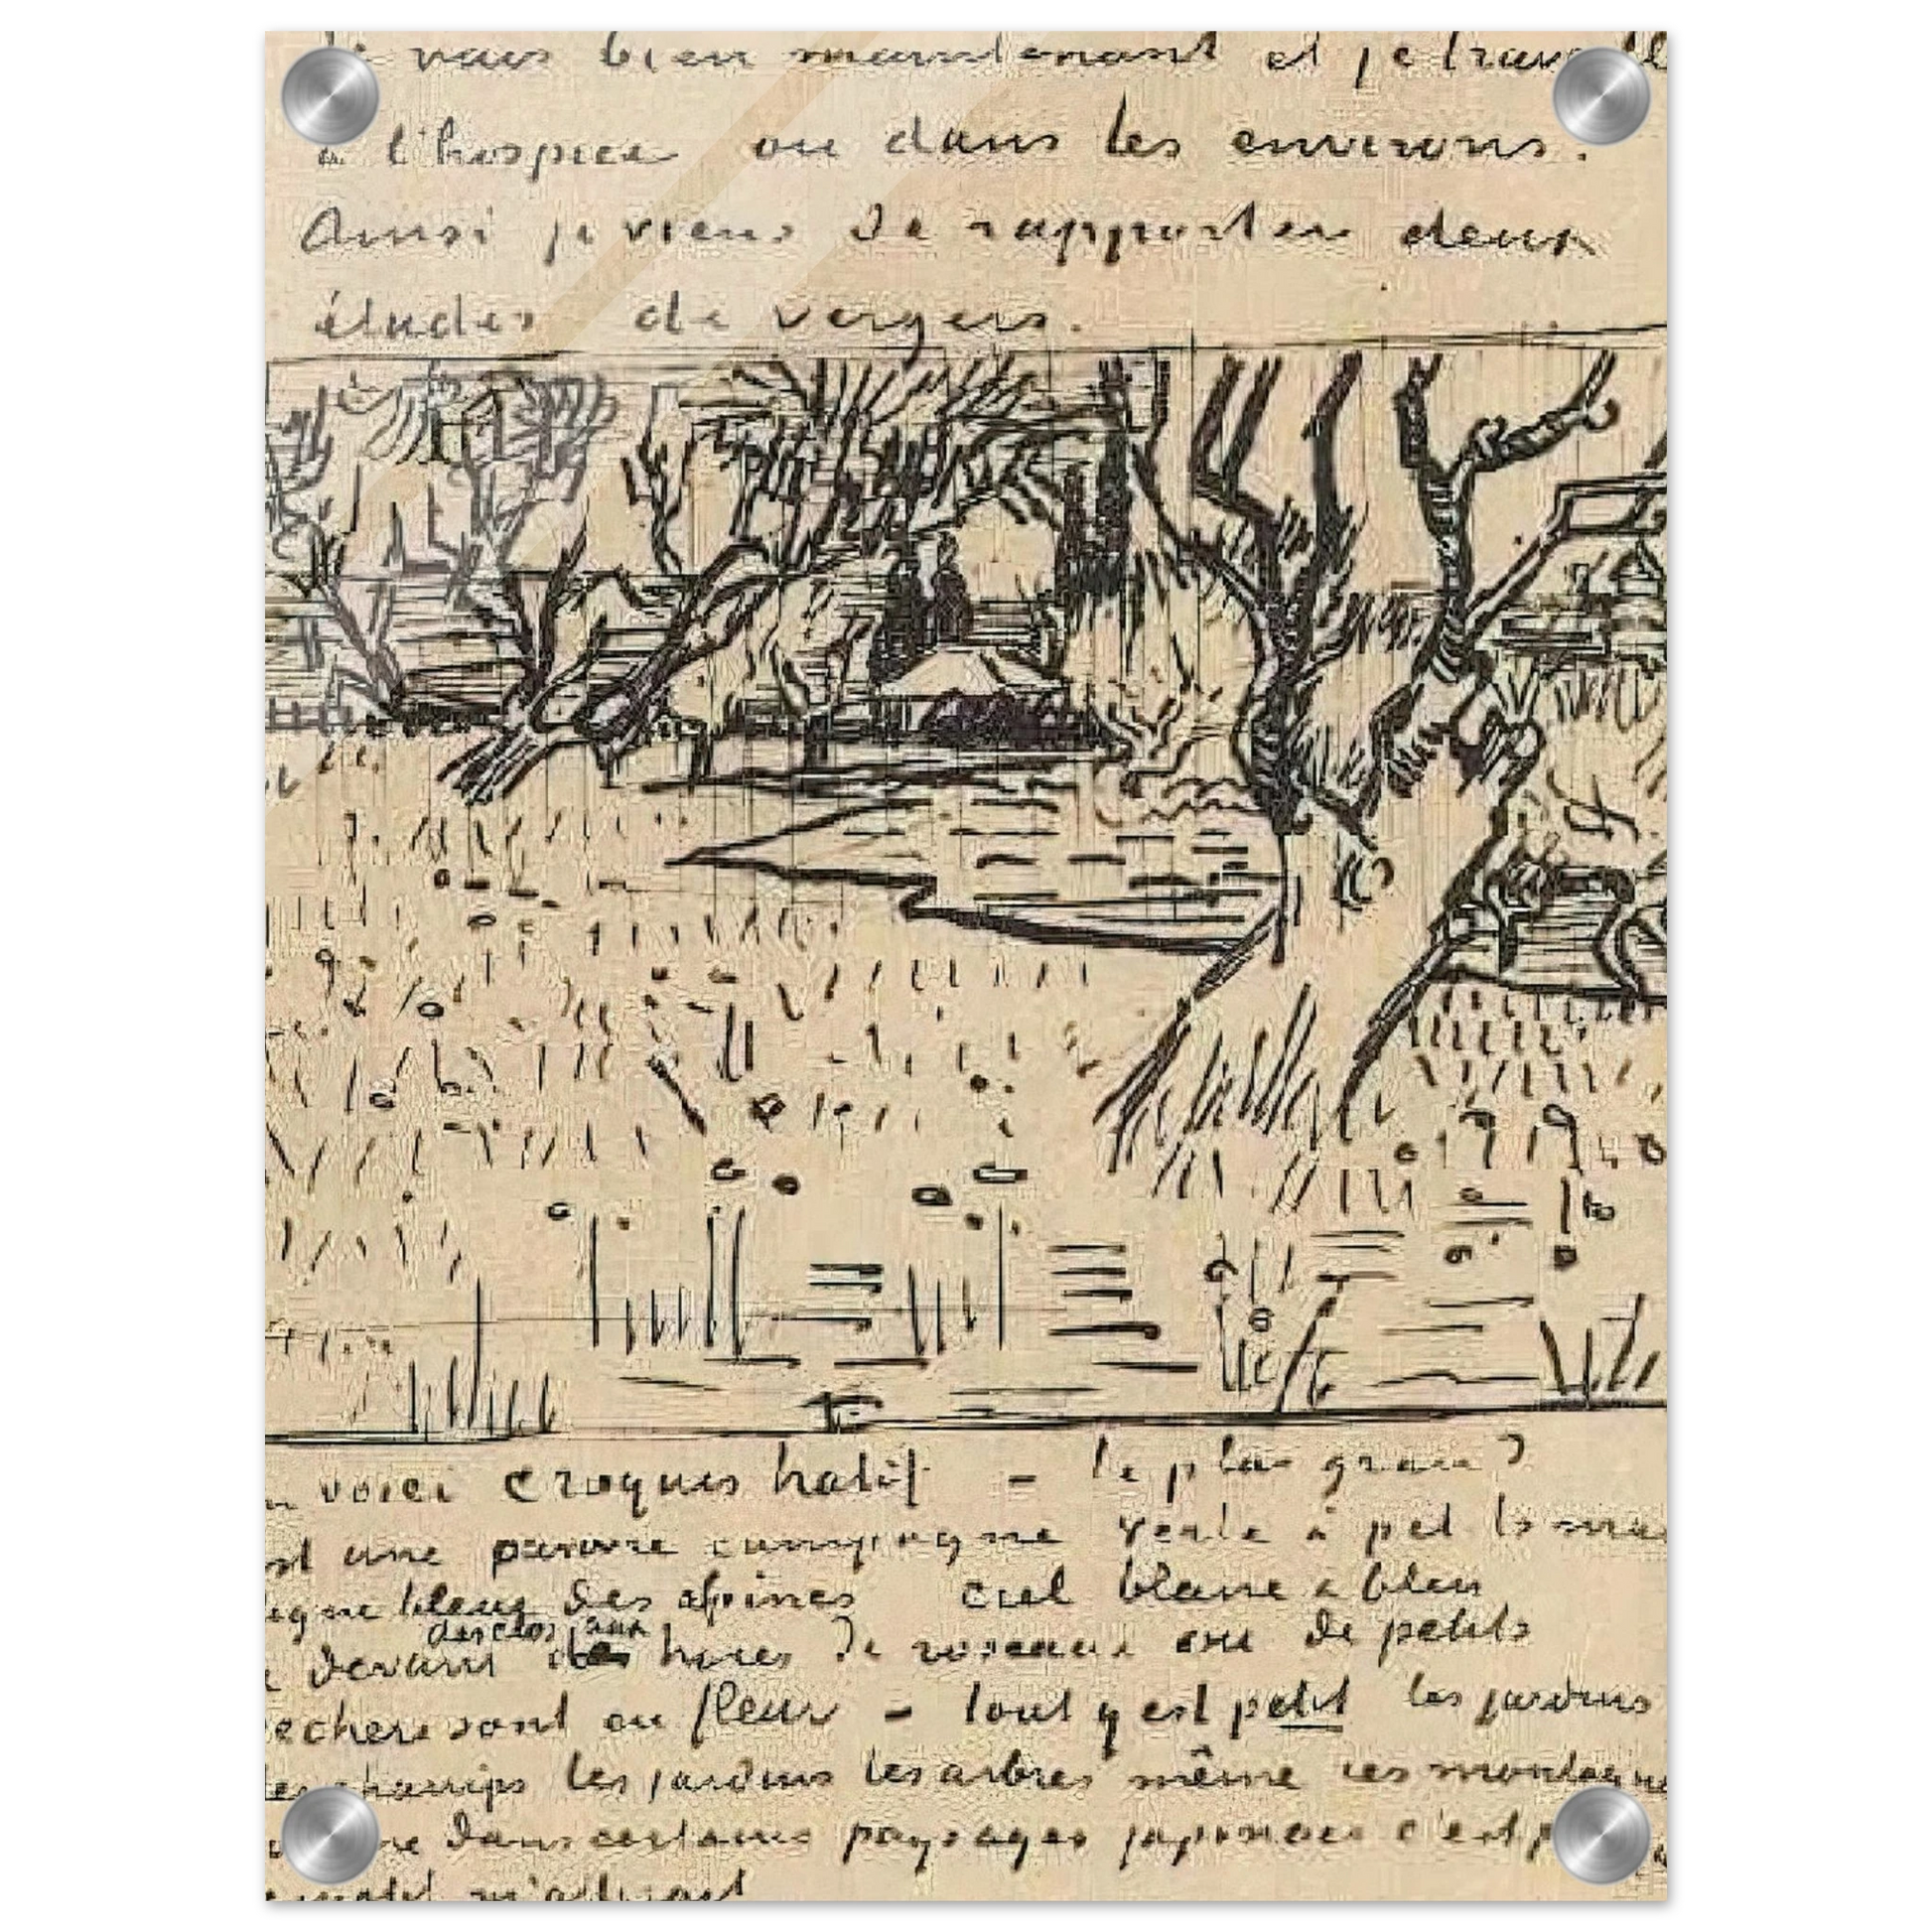 vais bien maintenant et je travaille
à l'hospice ou dans les environs.
Ainsi je viens de rapporter deux
études de vergers.
voici croquis hatif - le plus grand
est une pauvre campagne verte à petits mas
ligne bleue des alpines ciel blanc & bleu
des clos aux
devant haies de roseaux ou de petits
pechers sont en fleur - tout y est petit les jardins
les champs les jardins les arbres même ces montagnes
comme dans certains paysages japonais c'est p
m'attirait